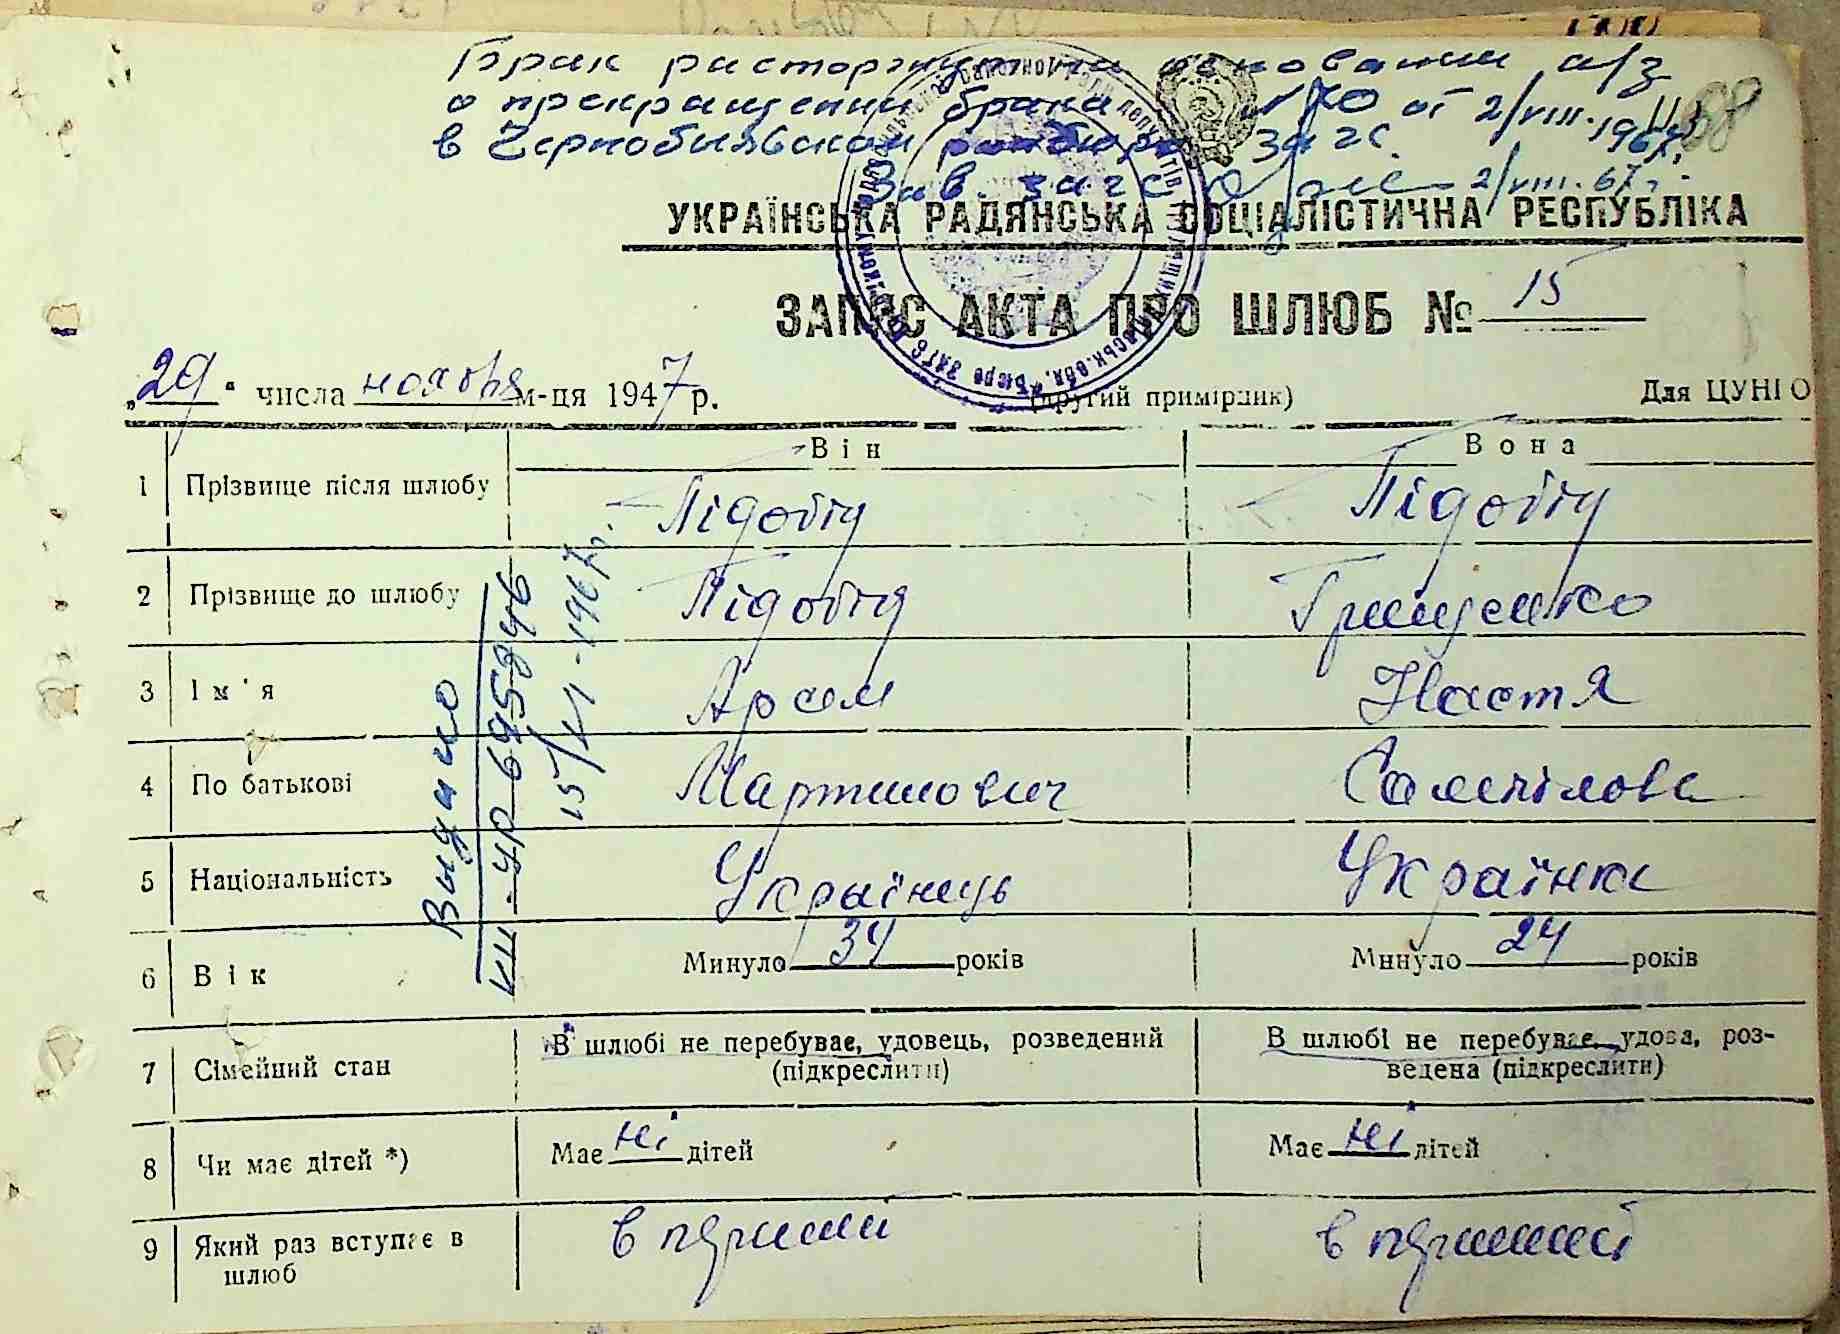 Брак расторгнут на основании а/з
о прекращении брака №170 от 2/VIII. 1967г.
в Чернобыльском райбюро загс.
Зав. загс 2/VIII. 67 г.
88
УКРАЇНСЬКА РАДЯНСЬКА СОЦІАЛІСТИЧНА РЕСПУБЛІКА
ЗАПИС АКТА ПРО ШЛЮБ № 15
„29“ числа ноября м-ця 1947 р. (другий примірник) Для ЦУНГО
Він Вона
1 Прізвище після шлюбу
2 Прізвище до шлюбу Грищенко
3 Ім'я Арсем Настя
4 По батькові Мартинович
5 Національність Українець Українка
6 Вік Минуло 34 років Минуло 24 років
7 Сімейний стан В шлюбі не перебуває, удовець, розведений В шлюбі не перебуває, удова, роз-
(підкреслити) ведена (підкреслити)
8 Чи має дітей *) Має ні дітей Має ні дітей
9 Який раз вступає в в перший в перший
шлюб
Выдано
15/VI-1967г.